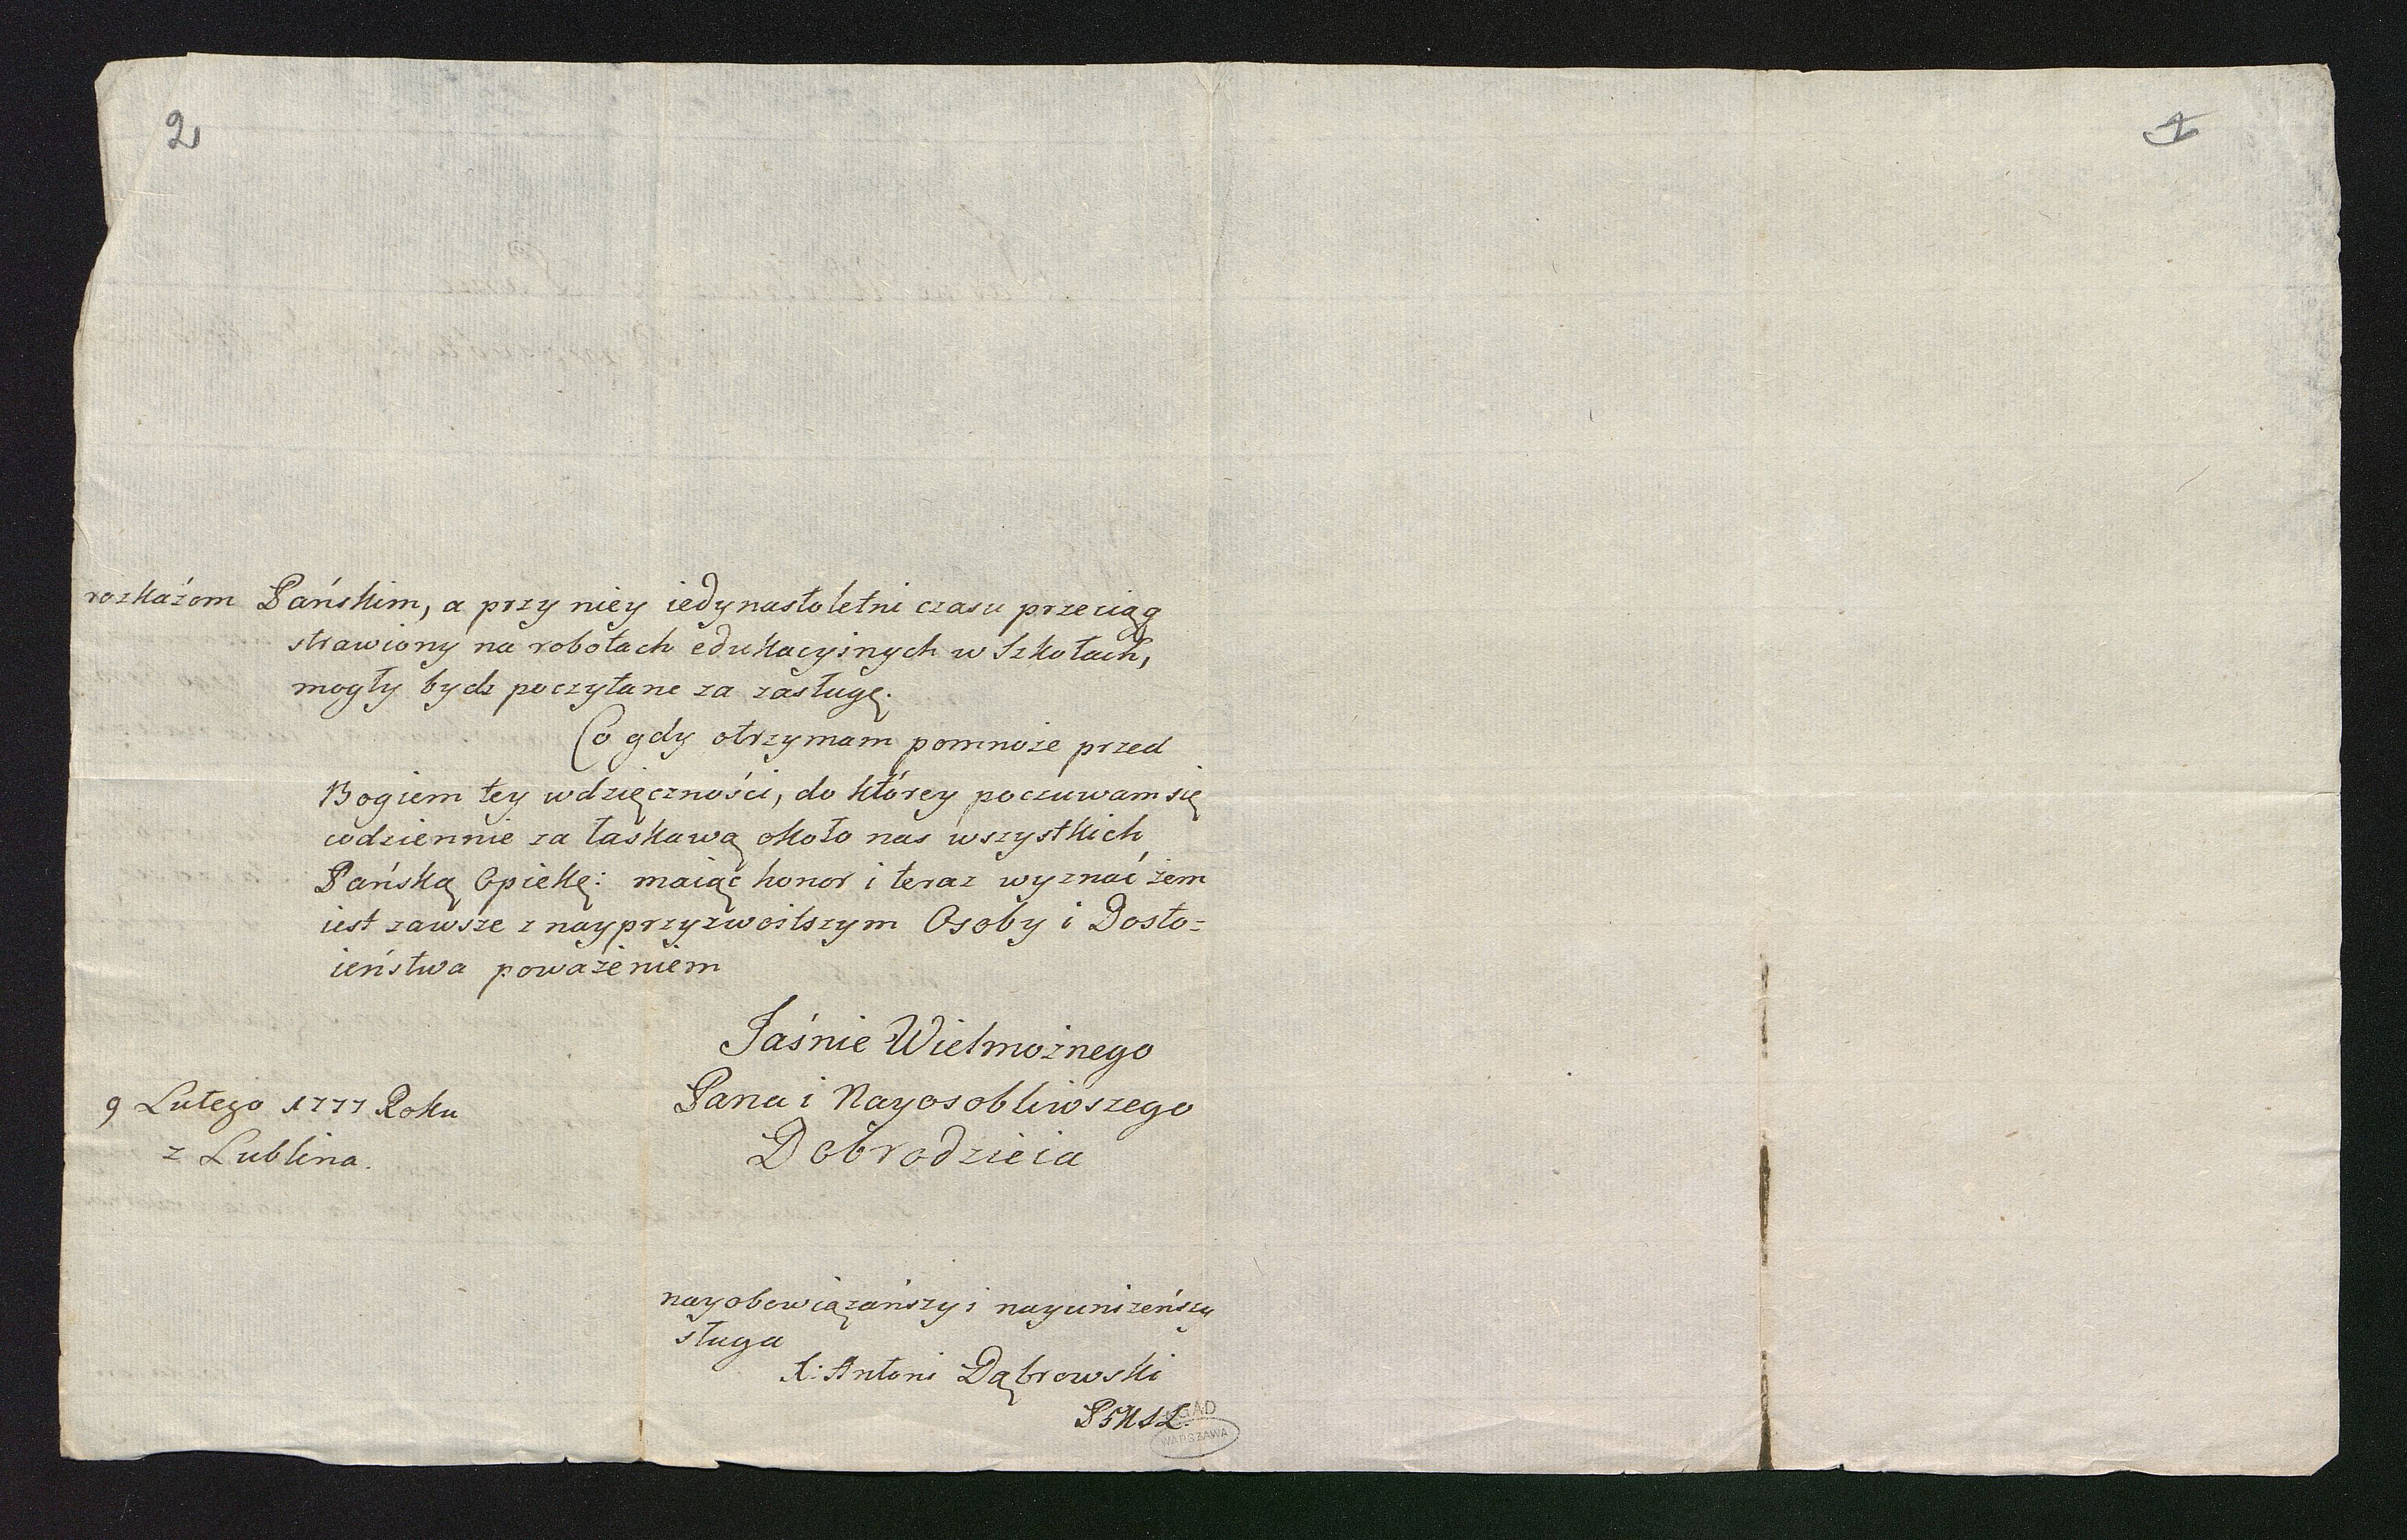 2
rozkaźom Pańskim, a przy niey iedynastoletni czasu przeciąg
strawiony na robotach edukacyinych w Szkołach,
mogły bydź poczytane za zasługę.
Co gdy otrzymam pomnoże przed
Bogiem tey wdzięczności, do którey poczuwam się
codziennie za łaskawą około nas wszystkich
Pańską Opiekę: maiąc honor i teraz wyznać żem
iest zawsze z nayprzyzwoitszym Osoby i Dosto=
ieństwa poważeniem
Jaśnie Wielmożnego
Pana i Nayosobliwszego
Dobrodzieia
9 Lutego 1777 Roku
z Lublina.
nayobowiązańszy i nayuniżeńszy
sługa
X: Antoni Dąbrowski
AGAD
WARSZAWA